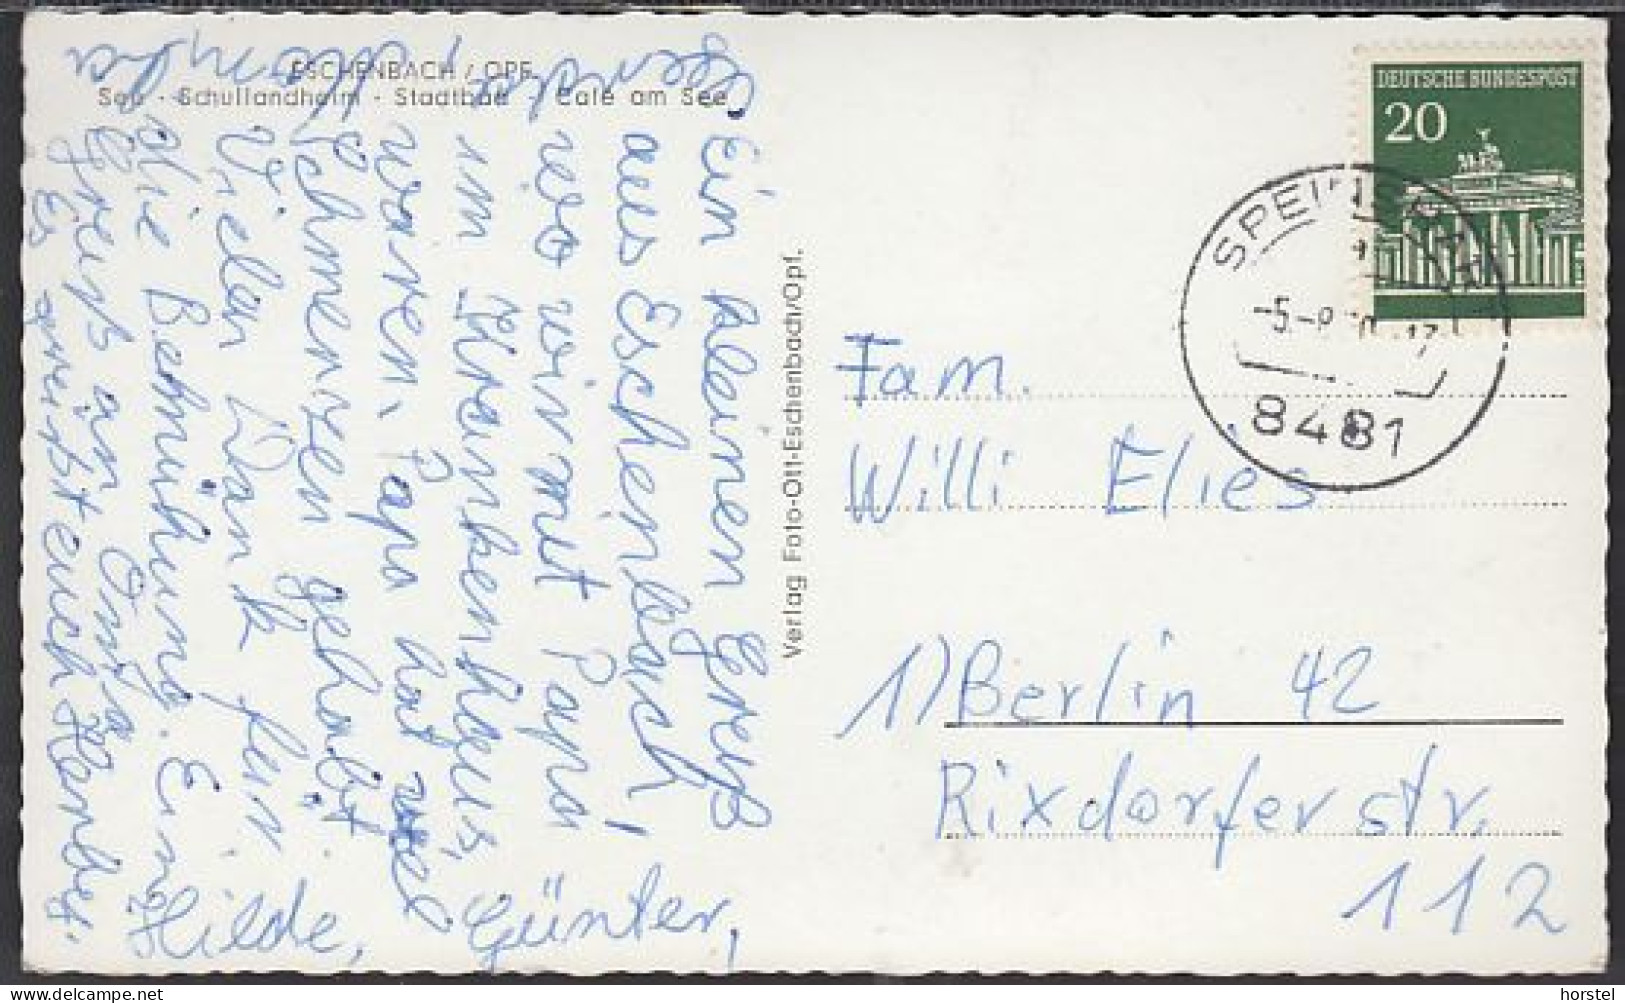 ESCHENBACH / OPF.
See - Schullandheim - Stadtbad - Café am See
Ein kleinen Gruß
aus Eschenbach,
wo wir mit Papa
im Krankenhaus,
waren. Papa hat viel
Schmerzen gehabt
Vielen Dank für
die Bemühung. Ein
Gruß an Oma
Es grüßt euch
Hilde,
Günter,
Gerda,
Verlag Foto-Ott-Eschenbach/Opf.
DEUTSCHE BUNDESPOST
20
8481
Fam.
Willi Elies
1) Berlin 42
Rixdorfer str.
112
horstel